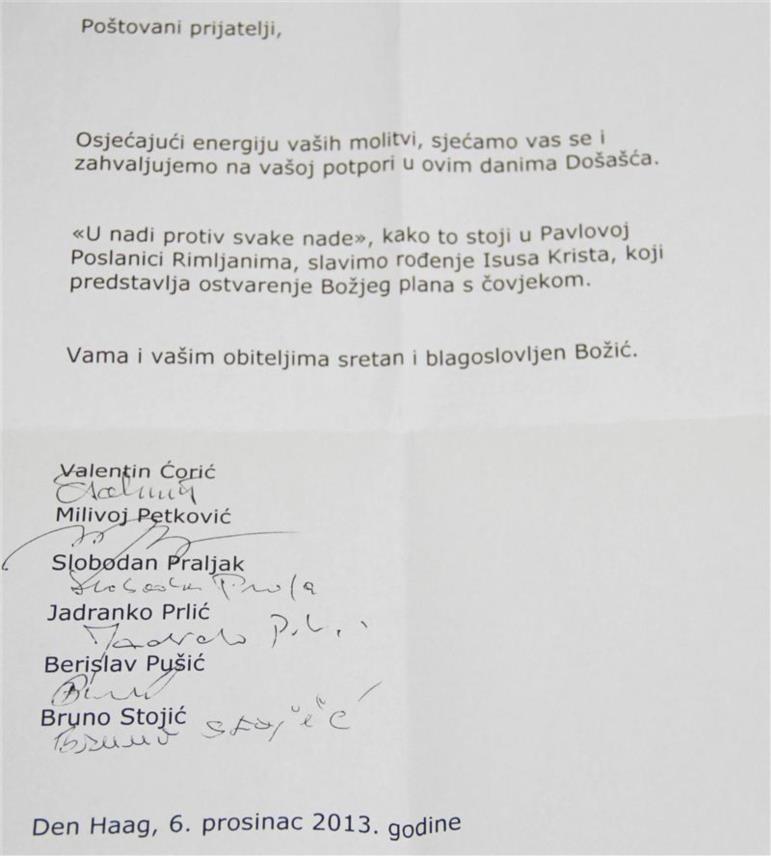 Poštovani prijatelji,
Osjećajući energiju vaših molitvi, sjećamo vas se i
zahvaljujemo na vašoj potpori u ovim danima Došašća.
«U nadi protiv svake nade», kako to stoji u Pavlovoj
Poslanici Rimljanima, slavimo rođenje Isusa Krista, koji
predstavlja ostvarenje Božjeg plana s čovjekom.
Vama i vašim obiteljima sretan i blagoslovljen Božić.
Valentin Ćorić
Milivoj Petković
Slobodan Praljak
Slobodan
Jadranko Prlić
Berislav Pušić
Bruno Stojić
Bruno Stojić
Den Haag, 6. prosinac 2013. godine